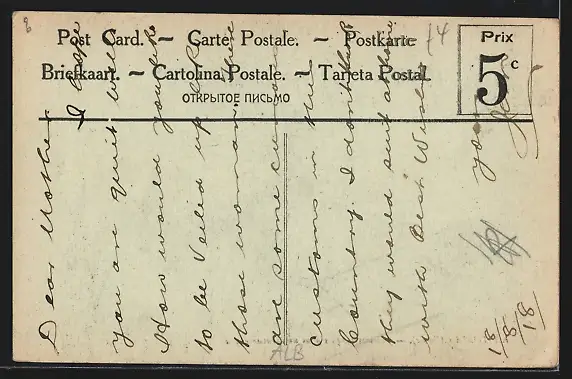 Post Card. — Carte Postale. — Postkarte
Briefkaart. — Cartolina Postale. — Tarjeta Postal.
ОТКРЫТОЕ ПИСЬМО
Prix
5c
14
Dear Mother
I hope
you are quit well
How would you like
to be Veiled up like
those woman there
are some curious
customs in this
Country. I don't think
they would suit at home
with Best Wishes
your
Jack
18/8/18
ALB